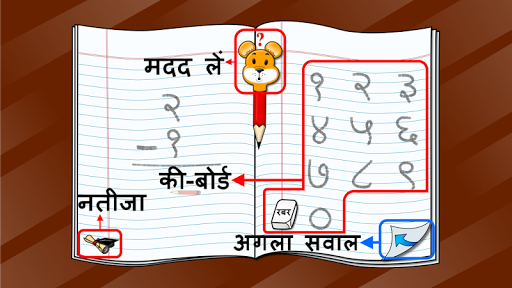 ?
मदद लें
१ २ ३
२
४ ५ ६
-१
७ ८ ९
की-बोर्ड
नतीजा
रबर ०
अगला सवाल